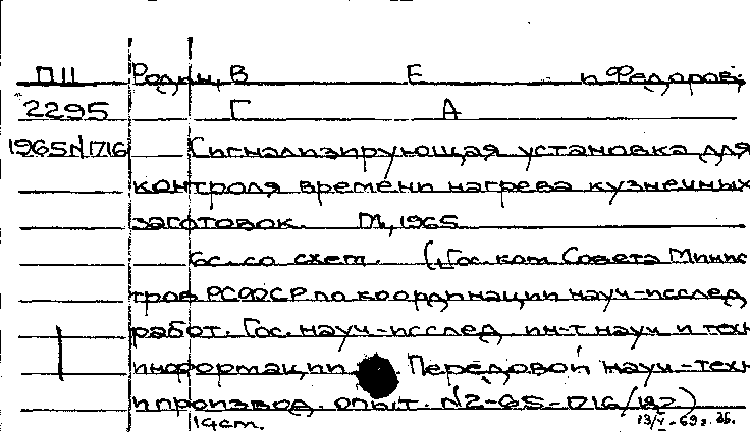 ПII Родин, В Е и Федоров,
2295 Г А
1965№1716 Сигнализирующая установка для
контроля времени нагрева кузнечных
заготовок. М., 1965
6с. со схем. (Гос. ком Совета Минис
тров РСФСР по координации науч-исслед
работ. Гос. науч-исслед ин-т науч и техн
информации Передовой науч-техн
и производ. опыт. №2-65-1716/182)
19см.